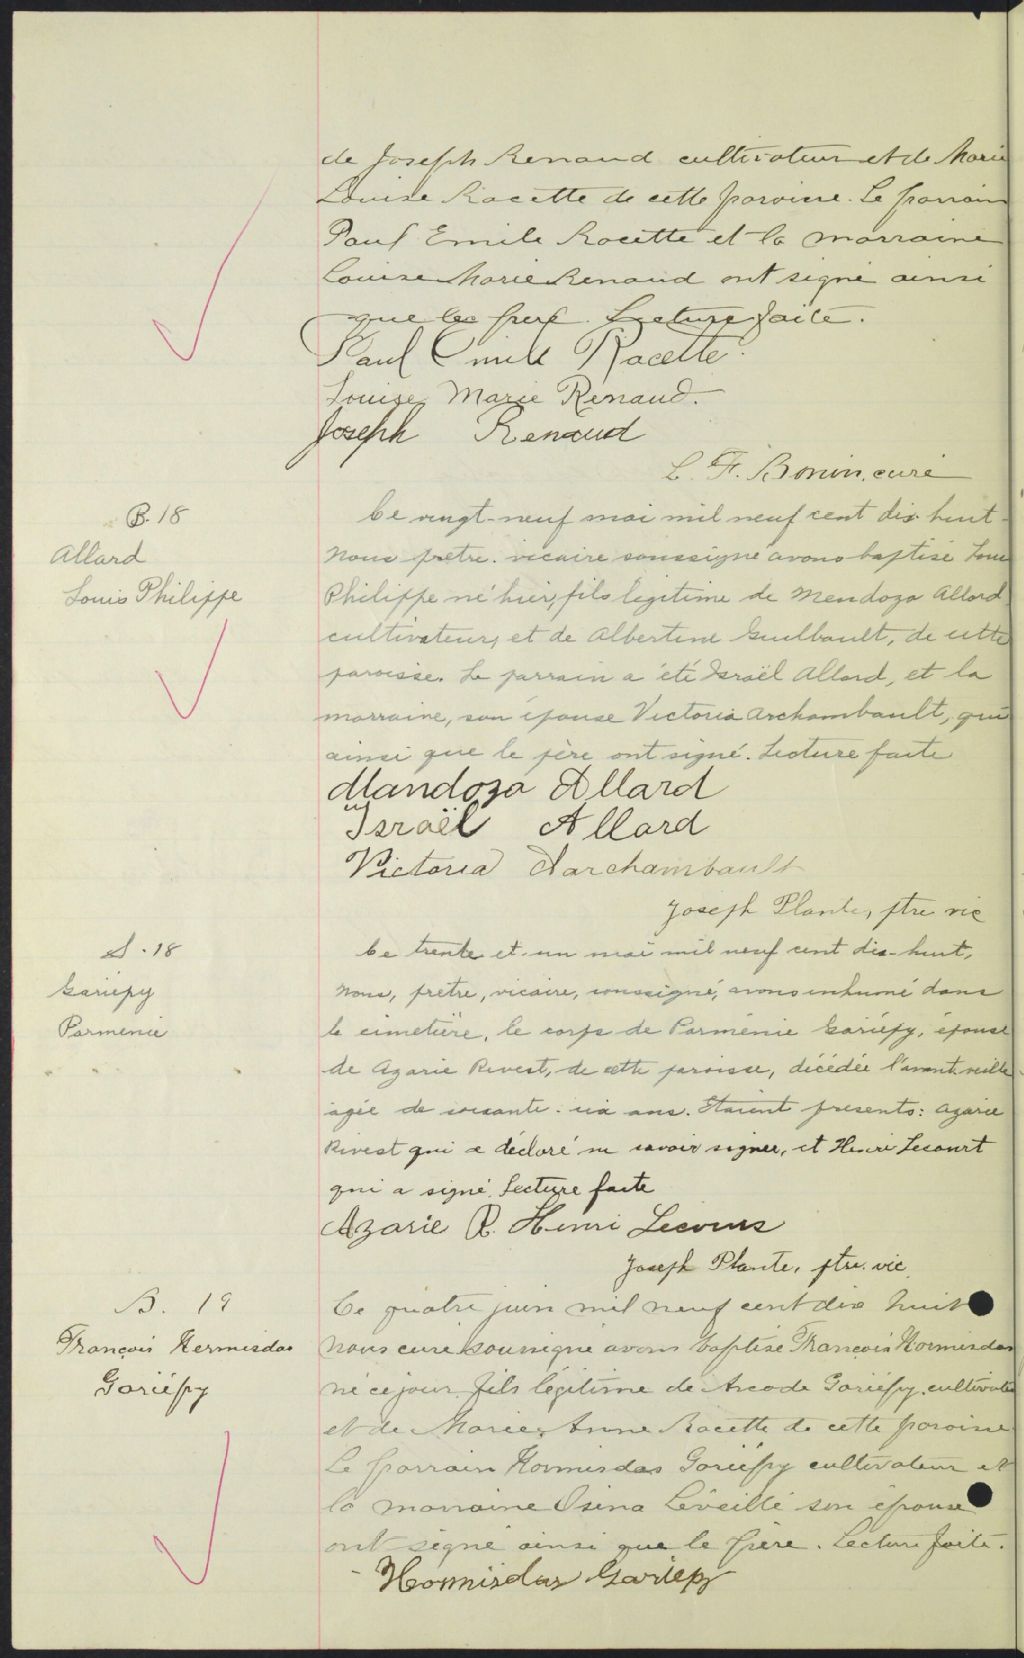 de Joseph Renaud cultivateur et de Marie
Louise Racette de cette paroisse. Le parrain
Paul Emile Racette et la marraine
Louise Marie Renaud ont signé ainsi
que le père. Lecture faite.
Paul Emile Racette.
Louise Marie Renaud.
Joseph Renaud
L. F. Bonin, curé
B. 18
Allard
Louis Philippe
Ce vingt-neuf mai mil neuf cent dix-huit
nous prêtre vicaire soussigné avons baptisé Louis
Philippe né hier, fils légitime de Mendoza Allard
cultivateur, et de Albertine Guilbault, de cette
paroisse. Le parrain a été Israël Allard, et la
marraine, son épouse Victoria Archambault, qui
ainsi que le père ont signé. Lecture faite
Mandoza Allard
Israël Allard
Victoria Archambault
Joseph Plante, ptre vic
S. 18
Gariépy
Parmenie
Ce trente et un mai mil neuf cent dix-huit,
nous, prêtre, vicaire, soussigné, avons inhumé dans
le cimetière, le corps de Parménie Gariépy, épouse
de Azarie Rivest, de cette paroisse, décédée l'avant-veille
agée de soixante-six ans. Etaient presents: Azarie
Rivest qui a déclaré ne savoir signer, et Henri Lecourt
qui a signé. Lecture faite
Azarie R. Henri
Joseph Plante, ptre. vic.
B. 19
François Hormisdas
Gariépy
Ce quatre juin mil neuf cent dix huit
nous curé soussigné avons baptisé François Hormisdas
né ce jour, fils légitime de Gariépy cultivateur
et de Marie-Anne Racette de cette paroisse
Le parrain Hormisdas Gariépy cultivateur et
la marraine Osina Léveillé son épouse
ont signé ainsi que le père. Lecture faite.
Hormisdas Gariépy